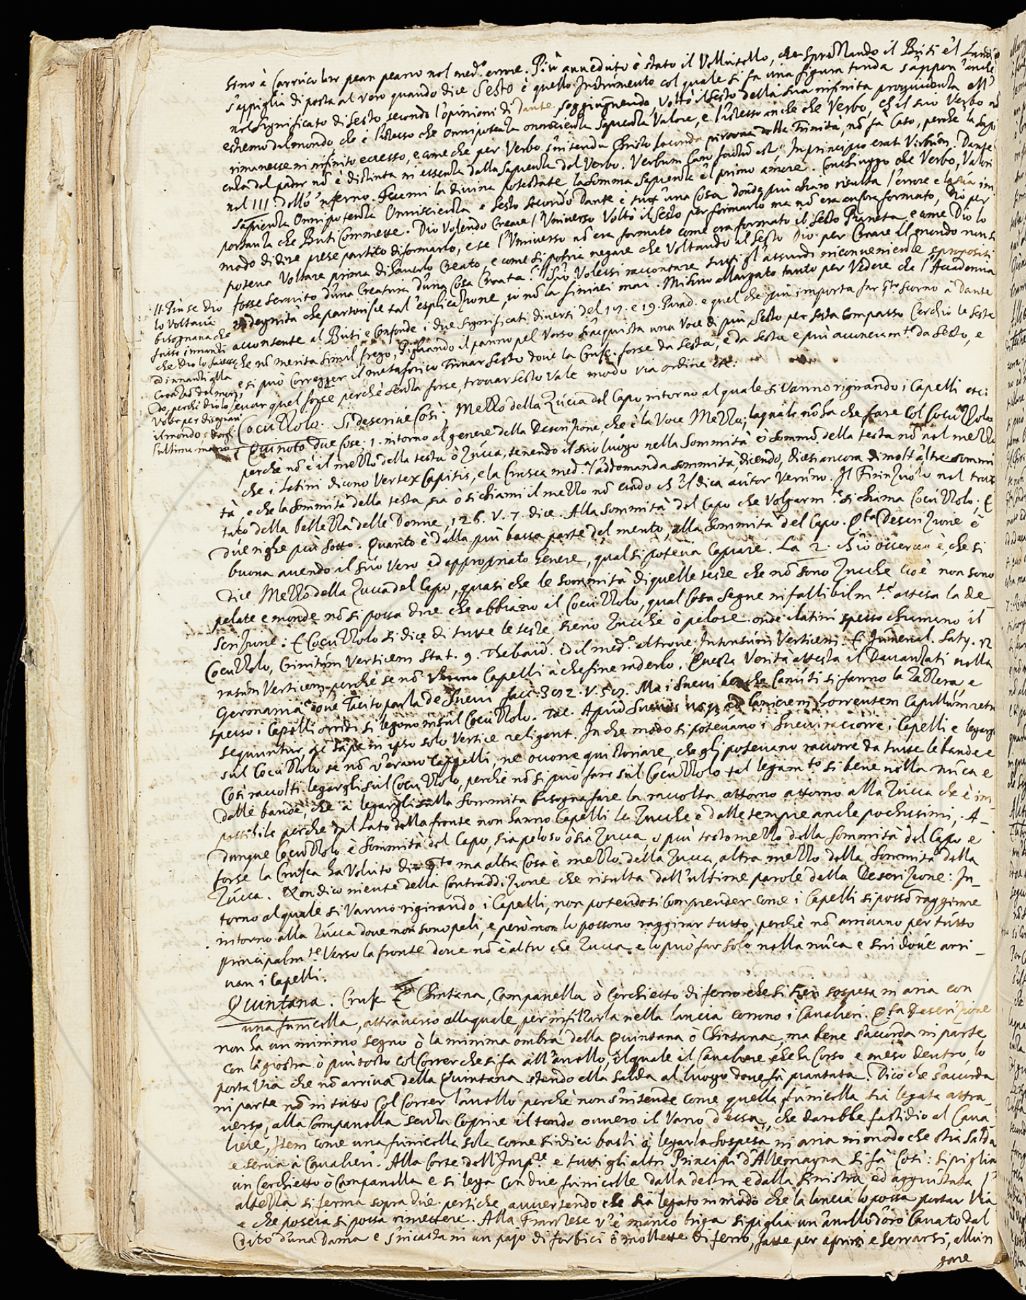 sino à Carrico ben pean pearo nel med.º errore. Più aueduto è stato il Vellutello, che sprezzando il Buti e'l Landino
s'appiglia di posta al vero quando dice Sesto è quello Instrumento col quale si fa una figura tonda s'appon anche
nel significato di Sesto, secondo l'opinioni di Dante, soggiugnendo Volto il Sesto della sua infinita prouidenza all'
estremo del mondo, che è l'istesso che omnipotenza omniscienza Sapienza Valore, e l'istesso anche che Verbo, ch'il suo Verbo nõ
rimanesse in infinito eccesso, e come che per Verbo s'intenda Christo seconda persona della Trinità, nõ fà caso, perche la Sapi
enza del padre nõ è distinta in essenza dalla Sapienza del Verbo. Verbum Caro factum est. In principio erat Verbum. Dante
nel III dell'inferno. Fecemi la diuina potestate la somma Sapienza e'l primo amore. Conchiuggo che Verbo, Valore
Sapienza Omnipotenza Omniscienza e Sesto secondo Dante è tutt'una Cosa donde più chiaro risulta l'errore e la
portanza che Buti Commesse. Dio Volendo Creare l'Vniuerso Voltò il Sesto per formarlo ma nõ era ancora formato, Dio per
modo di dire prese partito di formarlo, e se l'Vniuerso nõ era formato come era formato il Sesto Pianeta, e come Dio lo
poteua Voltare prima d'hauerlo Creato, e come si potrà negare che Voltando il Sesto Dio per Creare il mondo non si
fosse seruito d'una Creatura d'una Cosa Creata. S'io Volessi raccontare tutti gl'assurdi inconuenienti e spropositi
ed indegnità che partorisce tal'esplicazione, io nõ la finirei mai. Mi sono allargato tanto per Vedere che l'Accademia
acconsente al Buti e Confonde i due significati diuersi del 17. e 19. Parad. e quel che più importa far q.to scorno à Dante
che nõ merita simil frego, stiguando il panno pel Verso s'acquista una Voce di più, Sesto per Sesta Compasso Cerchio le Seste
e si può Corregger il metaforico trouar Sesto doue la Crus. forse da Sesta, e da Sesta e più acconciam.te da Sesto, e
leuar quel forse perchè senza forse, trouar Sesto Vale modo via ordine etc.
II. Più se Dio
lo Voltaua
bisognaua che
fusse innanzi
che Dio lo facesse
Dinanzi alla
Creatio del mon
do, perche Dio lo
Volse per disegnar
il mondo e dargli
l'ultima mano
Cocuzzolo. Si descriue Così, Mezzo della Zucca del Capo intorno al quale si Vanno rigirando i Capelli etc.
Qui noto due Cose. 1. intorno al genere della Descrizione che è la Voce Mezzo, laquale nõ ha che fare Col Cocuzzolo
perche nõ è il mezzo della testa ò Zucca, tenendo il suo luogo nella Sommità ò sommo della testa nõ nel mezzo
che i Latini dicono Vertex Capitis, e la Crusca med.ª l'addomanda sommità, dicendo, dicesi ancora di molt'altre sommi
tà, e che la sommità della testa sia ò si chiami il mezzo nõ credo ch'il dica autor Veruno. Il Firinzuolo nel trat
tato della Bellezza delle Donne, 126. V. 7. dice. Alla Sommità del Capo che Volgarm.te si chiama Cocuzzolo, E
due righe più sotto. Quanto è dalla più bassa parte del mento, alla Sommità del Capo. Q.ta Descrizione è
buona auendo il suo Vero ed appropriato genere, qual si poteua Copiare. La 2. ch'io osseruo è, che si
dice Mezzo della Zucca del Capo, quasi che le Sommità di quelle teste che nõ sono Zucche cioè non sono
pelate e monde nõ si possa dire che abbiano il Cocuzzolo, qual Cosa segue infallibilm.te attesa la De-
scrizione. E Cocuzzolo si dice di tutte le teste, sieno Zucche ò pelose. onde i Latini spesso chiamano il
Cocuzzolo, Crinitum Verticem Stat. 9. Thebaid. Ed il med.º altroue Intonsum Verticem. E Iuuenal. Saty. 12
rasum Verticem, perche se nõ Vi sono Capelli à che fine raderlo. Questa Verità attesta il Dauanzati nella
Germania oue Tacito parla de Sueui facc. 392. V. 57. Ma i Sueui benche Canuti si fanno la Zazzera e
spesso i Capelli orridi si legono in sul Cocuzzolo. Tac. Apud Sueuos usq. ad Canitiem horrentem Capillum retro
sequuntur, ac saepe in ipso solo Vertice religant. In che modo si poteuano i Sueui raccorre i Capelli e legargli
sul Cocuzzolo se nõ V'erano Capelli, ne occorre qui storiare, che gli poteuano raccorre da tutte le bande e
Così raccolti legargli sul Cocuzzolo, perchè nõ si può fare sul Cocuzzolo tal legam.to si bene nella nuca e
dalle bande, che à legargli sulla Sommità bisogna fare la raccolta attorno attorno alla Zucca che è im
possibile perche dal lato della fronte non hanno Capelli le Zucche e dalle tempie anche pochissimi. A-
dunque Cocuzzolo è Sommità del Capo, sia peloso ò sia Zucca, ò più tosto mezzo della Sommità del Capo e
forse la Crusca ha Voluto dir q.to ma altra Cosa è mezzo della Zucca, altra mezzo della Sommità della
Zucca. Non dico niente della Contraddizione che risulta dall'ultime parole della Descrizione: In-
torno al quale si Vanno rigirando i Capelli, non potendosi Comprender come i Capelli si possõ raggirare
intorno alla Zucca doue non sono peli, e però non lo possono raggirar tutto, perchè nõ arriuano per tutto
principalm.te Verso la fronte doue nõ è altro che Zucca, e lo può far solo nella nuca e fin doue arri
uan i Capelli.
Quintana. Crusc. E Chintana, Campanella ò Cerchietto di ferro che si tien sospesa in aria con
una funicella, attrauerso alla quale per infilzarla nella lancia corrono i Caualieri. Q.ta Descrizione
non ha un minimo segno ò la minima ombra della Quintana ò Chintana, ma bene s'accorda in parte
con la giostra ò più tosto col Correr che si fa all'anello, il quale il Caualiere che ha Corso e messo dentro, lo
porta Via che nõ arriua della Quintana stando ella Salda al luogo doue fù piantata. Dico che s'accorda
in parte nõ in tutto Col Correr l'anello perche non s'intende come quella funicella stia legata attra-
uerso, alla Campanella senza Coprire il tondo ouuero il Vano d'essa, che darebbe fastidio al Caua
liere, Item come una funicella sola Come s'indici basti à legarla Sospesa in aria in modo che stia Salda
e serua à Caualieri. Alla Corte dell'Imp.re e tutti gli altri Principi d'Allemagna si fà Così: si piglia
un Cerchietto ò Campanella e si lega Con due funicelle dalla destra e dalla Sinistra, ed aggiustata l'
altezza si ferma sopra due pertiche, auuertendo che sia legato in modo che la lancia lo possa portar Via
e che poscia si possa rimettere. Alla Franzese v'è manco briga si piglia un'anello d'oro Cauato dal
Dito d'una Dama e s'incastra in un pajo di forbici ò mollette di ferro, fatte per aprirsi e serrarsi, allun
gare